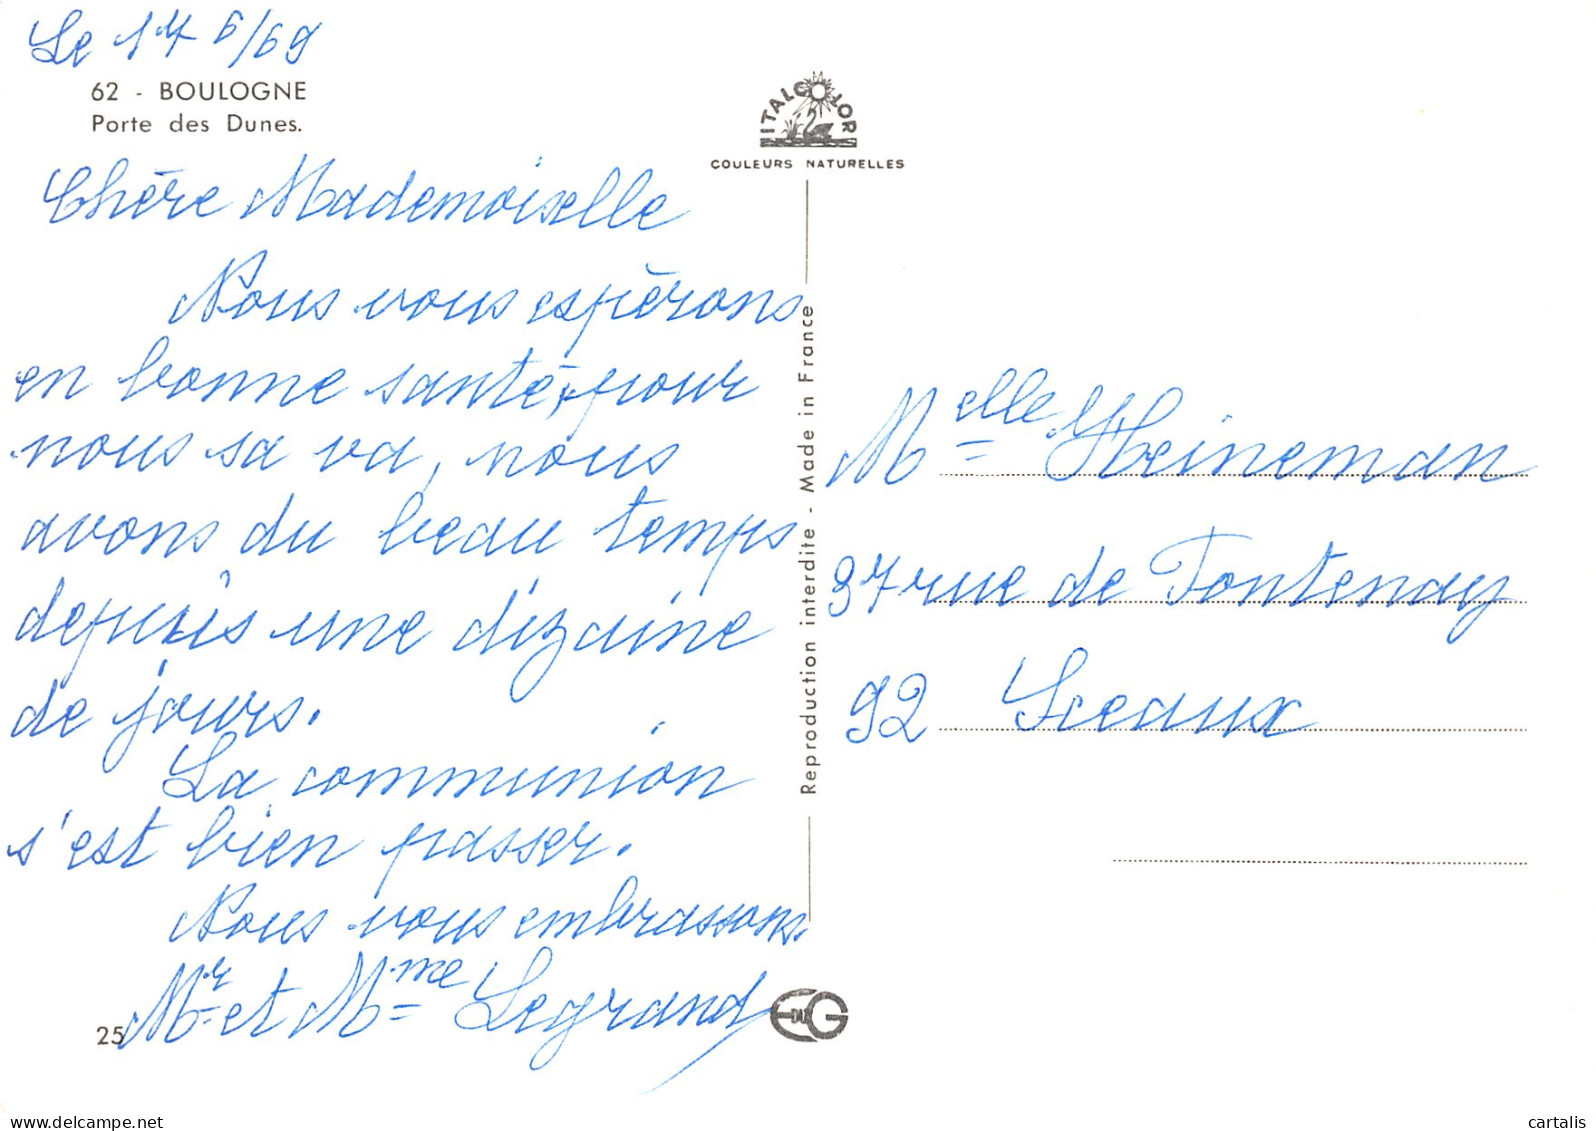 Le 14 6/69
62 - BOULOGNE
Porte des Dunes.
ITALCOLOR
COULEURS NATURELLES
Chère Mademoiselle
Nous vous espérons
en bonne santé, pour
nous sa va, nous
avons du beau temps
depuis une dizaine
de jours.
La communion
s'est bien passer.
Nous vous embrassons.
Mr et Mme Legrand
25
Reproduction interdite - Made in France
Melle Heineman
37 rue de Fontenay
92 Sceaux
cartalis
delcampe.net